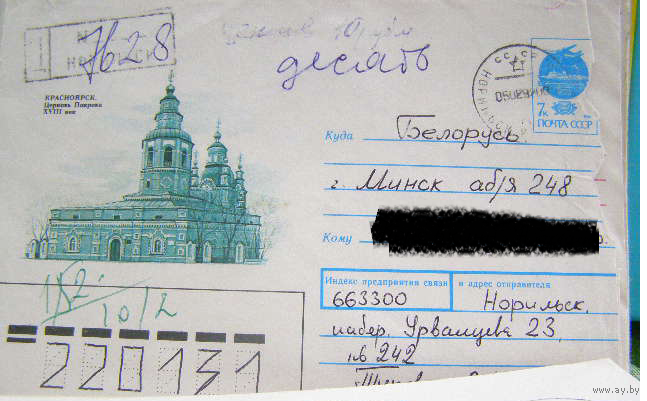 7628
десять
КРАСНОЯРСК.
Церковь Покрова
XVIII век
СССР
7к
ПОЧТА СССР
Куда Беларусь
г. Минск аб/я 248
Кому
Индекс предприятия связи и адрес отправителя
663300 Норильск,
набер. Урванцева 23,
кв 242
182
10/2
220131
www.ay.by